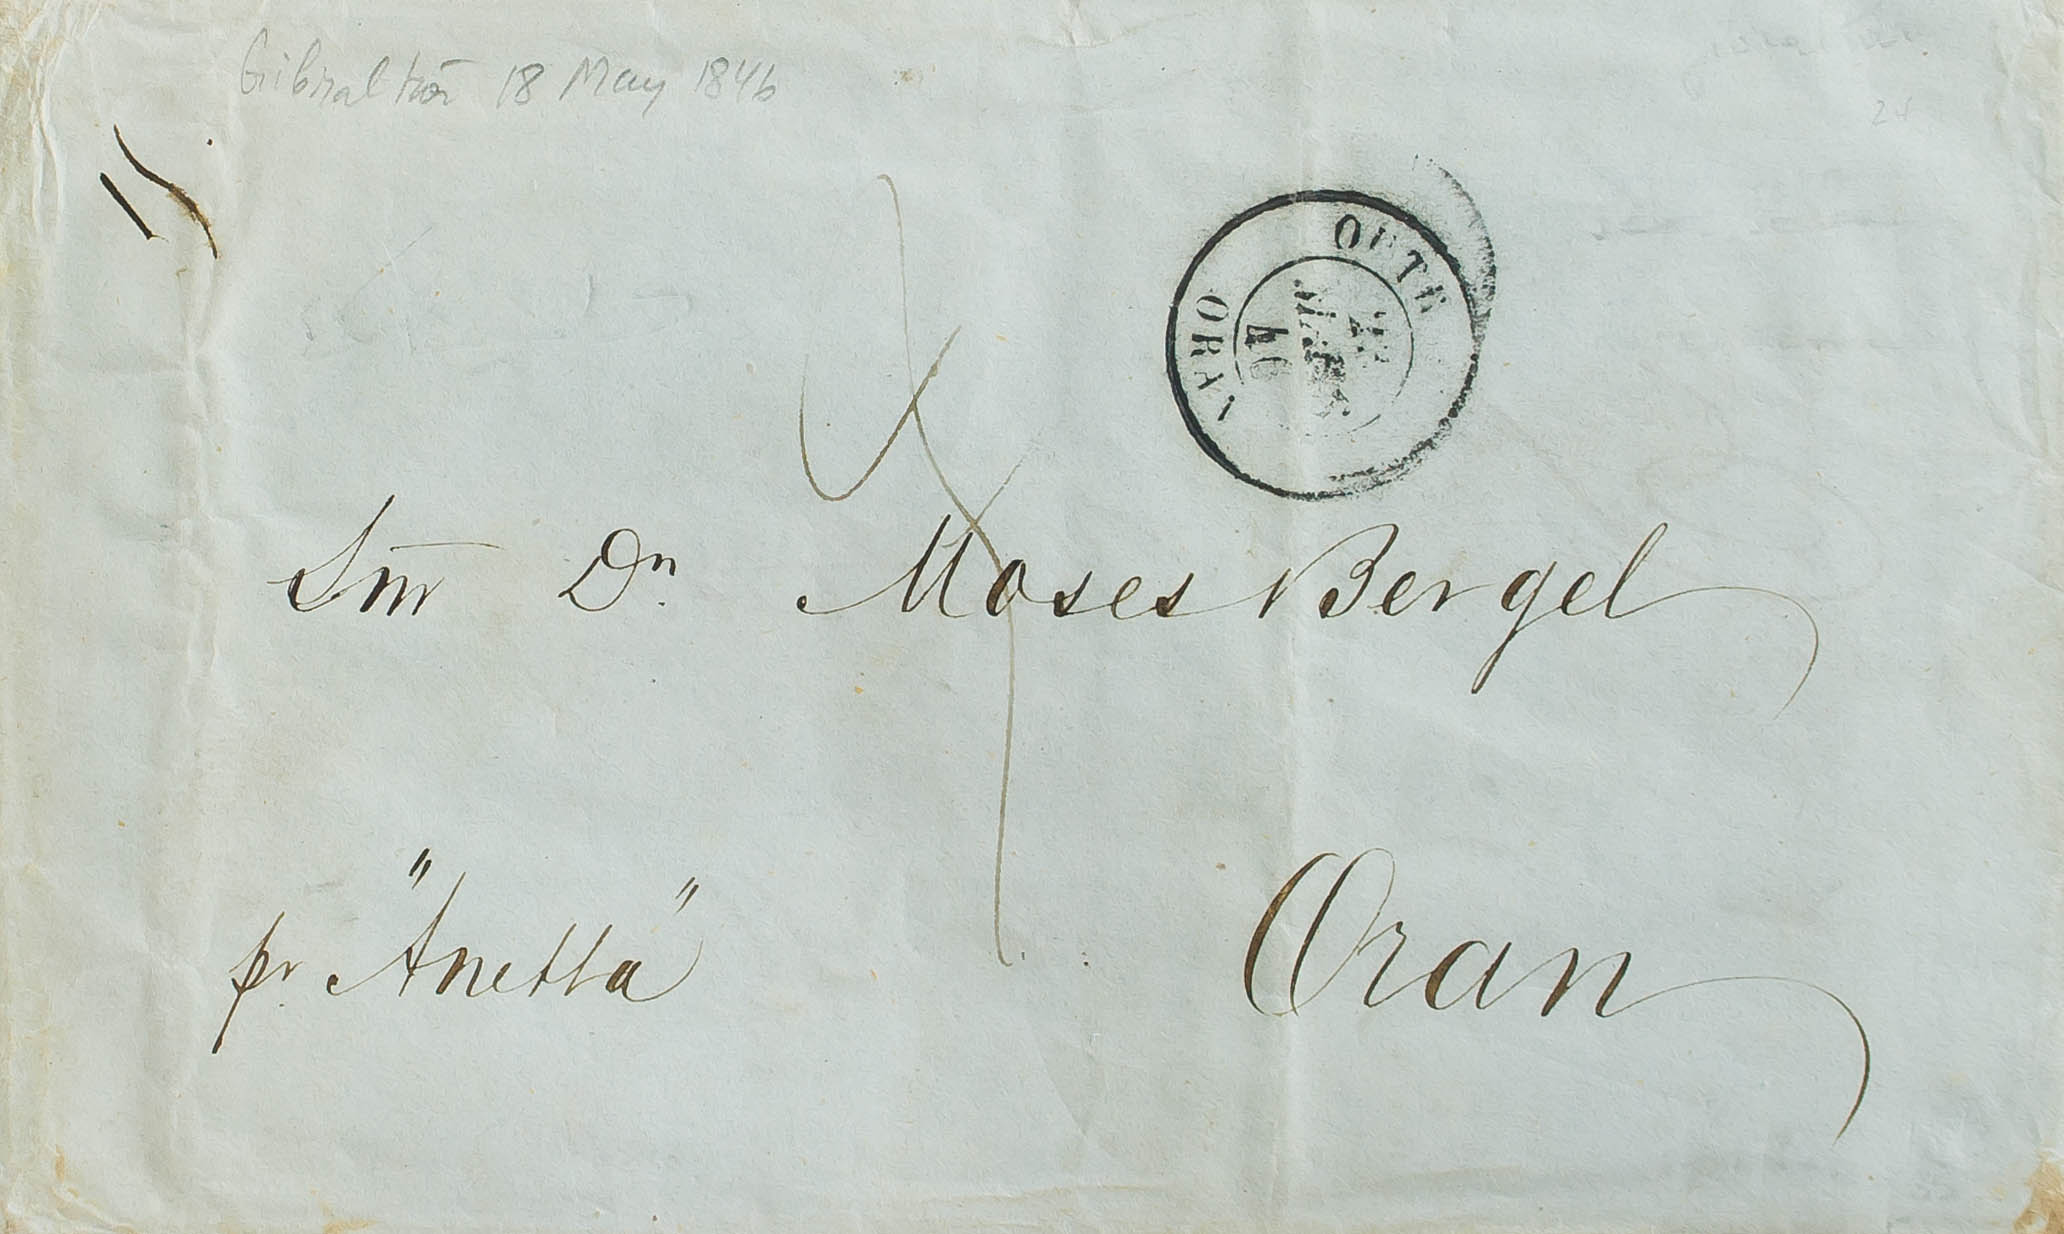 Gibraltar 18 May 1846
OUTR
ORAN
46
Snr Dn. Moses Bergel
pr. "Anetta"
Oran